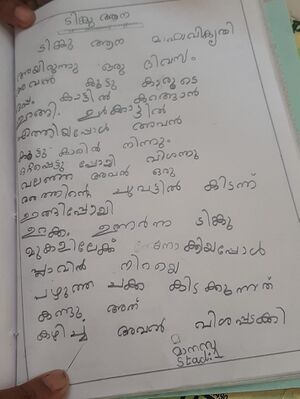 ടിങ്കു ആന
ടിങ്കു ആന മഹാവികൃതി
ആയിരുന്നു ഒരു ദിവസം
അവൻ കൂട്ടു കാരുടെ
ഒപ്പം കാട്ടിൽ കറങ്ങാൻ
ഇറങ്ങി. ഉൾക്കാട്ടിൽ
എത്തിയപ്പോൾ അവൻ
കൂട്ടു കാരിൽ നിന്നും
ഒറ്റപ്പെട്ടു പോയി വിശന്നു
വലഞ്ഞ അവൻ ഒരു
മരത്തിന്റെ ചുവട്ടിൽ കിടന്ന്
ഉറങ്ങിപ്പോയി
ഉറക്കം ഉണർന്ന ടിങ്കു
മുകളിലേക്ക് നോക്കിയപ്പോൾ
പ്ലാവിൽ നിറയെ
പഴുത്ത ചക്ക കിടക്കുന്നത്
കണ്ടു അത്
കഴിച്ച് അവൻ വിശപ്പടക്കി
മാനസ്സ